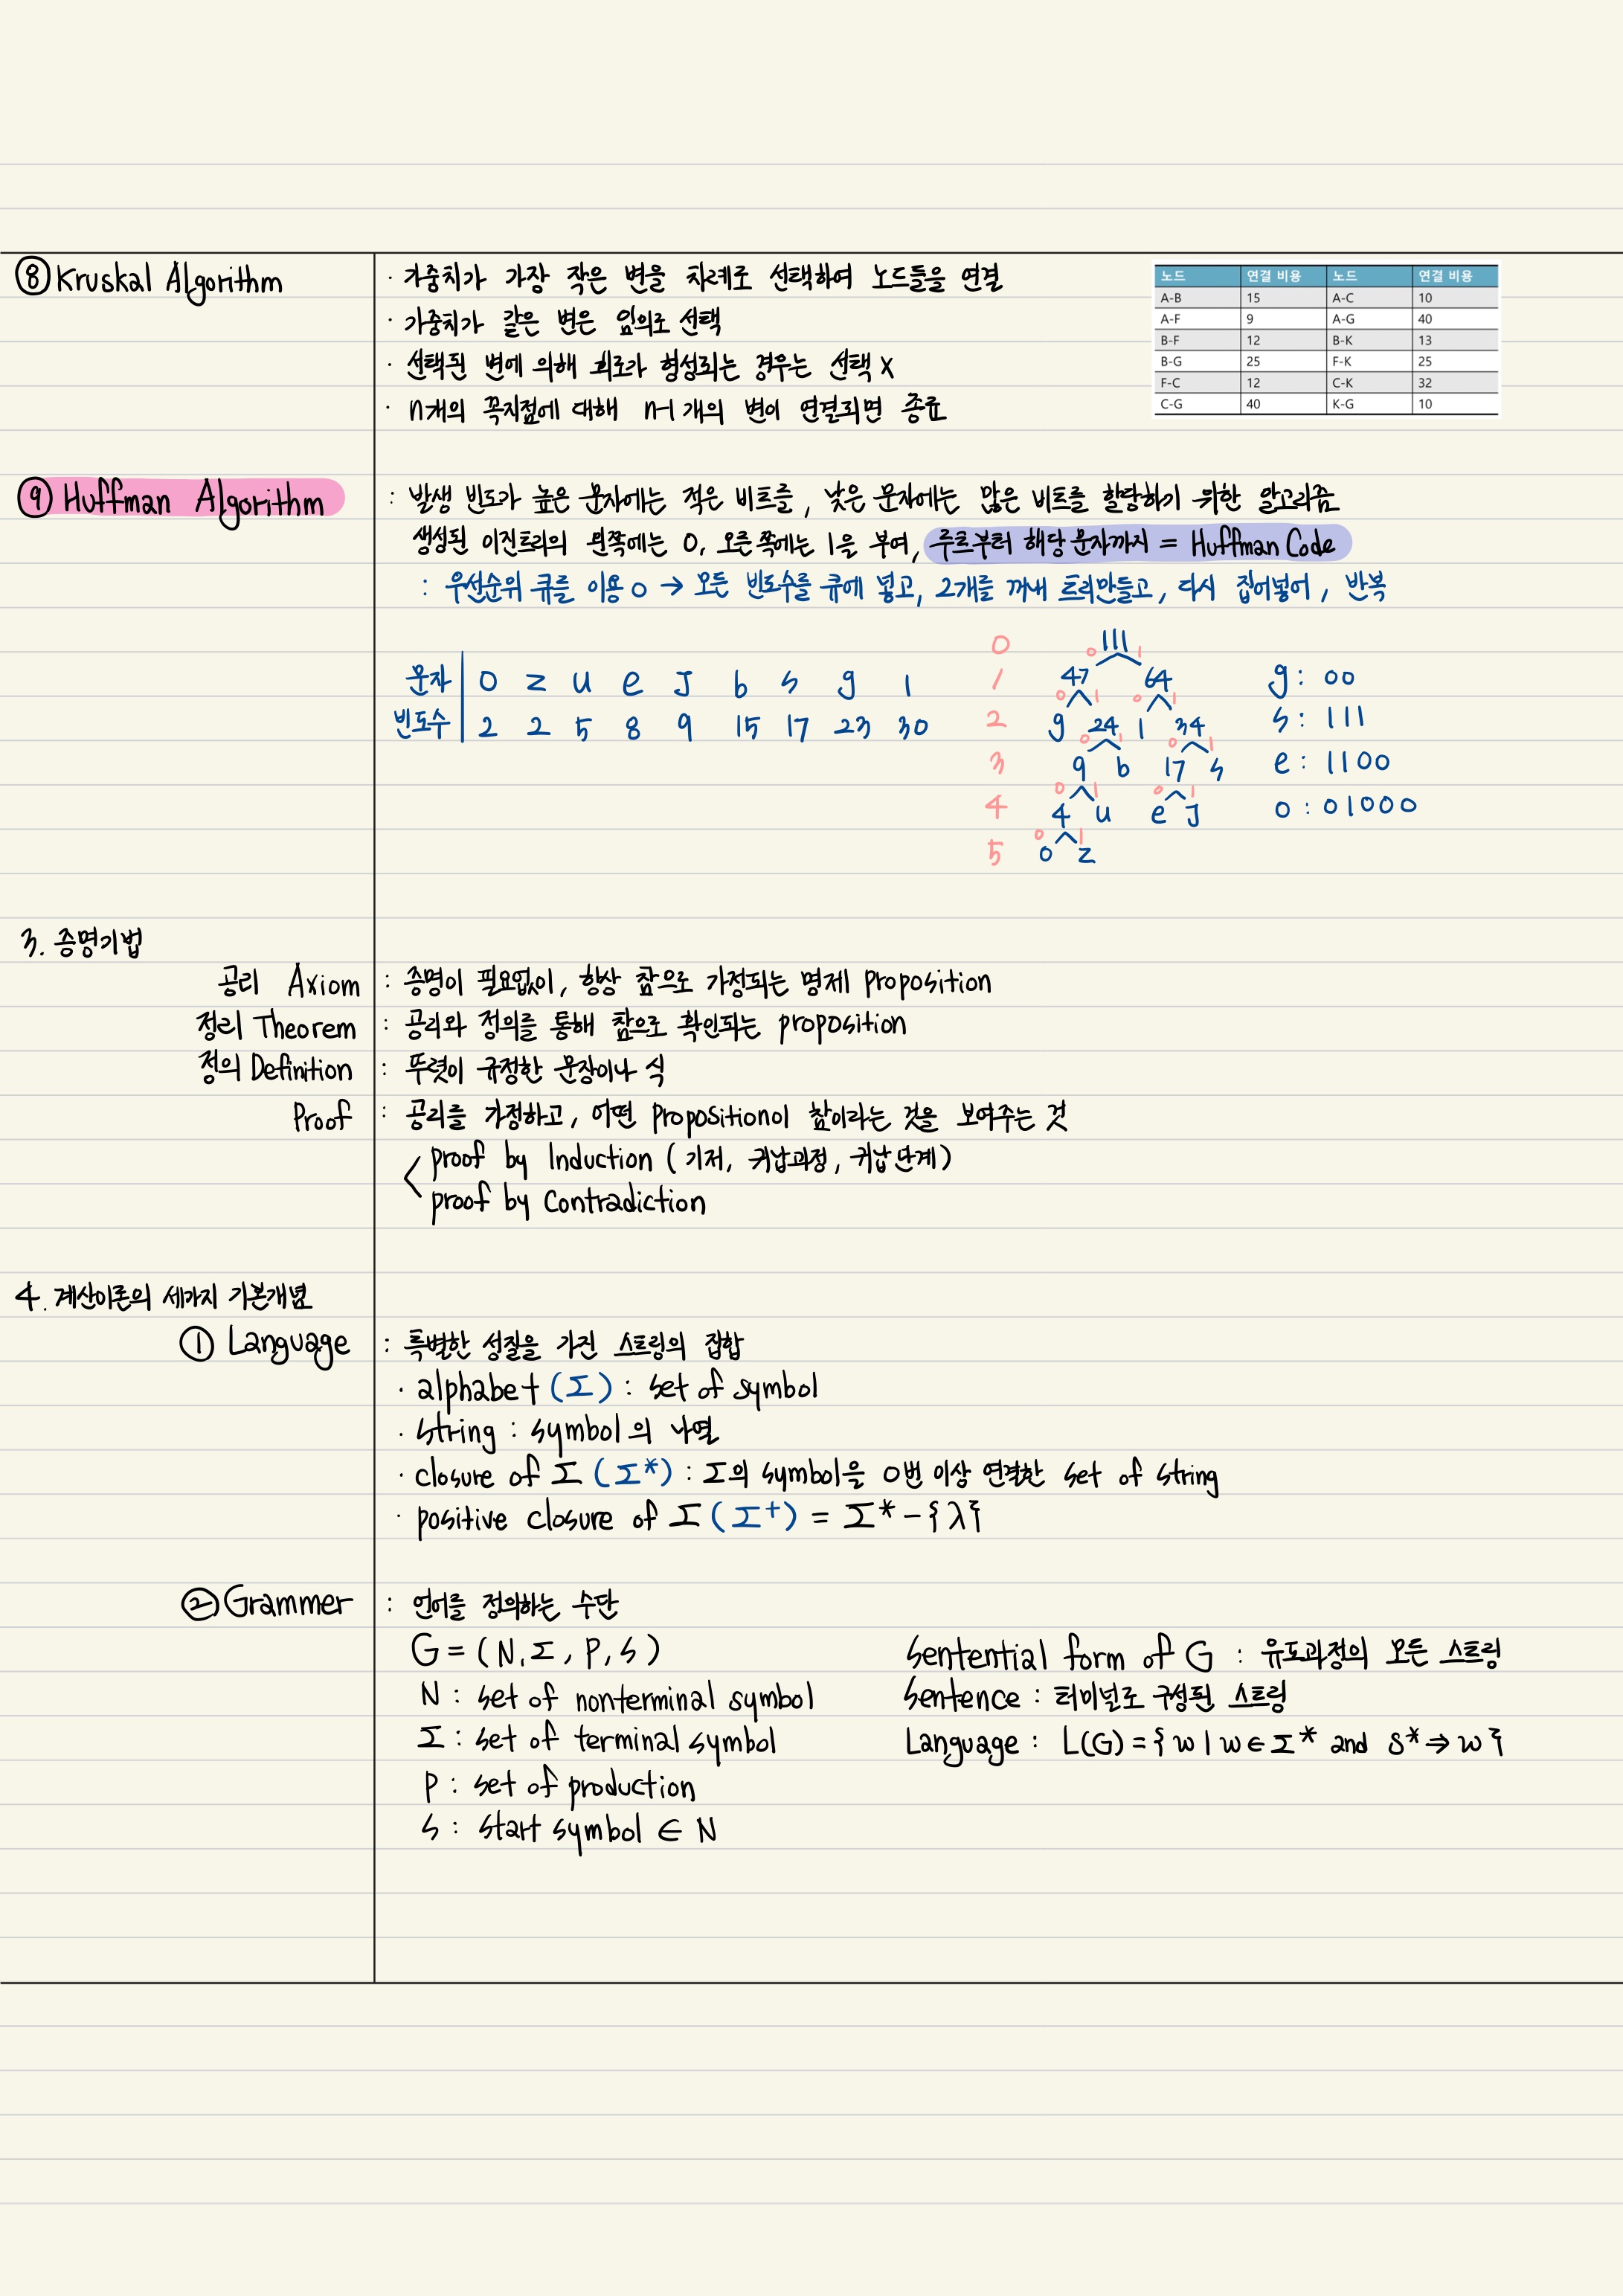 ⑧ Kruskal Algorithm
· 가중치가 가장 작은 변을 차례로 선택하여 노드들을 연결
· 가중치가 같은 변은 임의로 선택
· 선택된 변에 의해 회로가 형성되는 경우는 선택 X
· n개의 꼭지점에 대해 n-1개의 변이 연결되면 종료
노드 연결 비용 노드 연결 비용
A-B 15 A-C 10
A-F 9 A-G 40
B-F 12 B-K 13
B-G 25 F-K 25
F-C 12 C-K 32
C-G 40 K-G 10
⑨ Huffman Algorithm
: 발생 빈도가 높은 문자에는 적은 비트를, 낮은 문자에는 많은 비트를 할당하기 위한 알고리즘
생성된 이진트리의 왼쪽에는 0, 오른쪽에는 1을 부여, 루트부터 해당 문자까지 = Huffman Code
: 우선순위 큐를 이용 o → 모든 빈도수를 큐에 넣고, 2개를 꺼내 트리만들고, 다시 집어넣어, 반복
문자 o z u e J b s g l
빈도수 2 2 5 8 9 15 17 23 30
0 111
0 1
1 47 64
0 1 0 1
2 g 24 l 34
0 1 0 1
3 9 b 17 s
0 1 0 1
4 4 u e J
0 1
5 o z
g : 00
s : 111
e : 1100
o : 01000
3. 증명기법
공리 Axiom : 증명이 필요없이, 항상 참으로 가정되는 명제 proposition
정리 Theorem : 공리와 정의를 통해 참으로 확인되는 proposition
정의 Definition : 뚜렷이 규정한 문장이나 식
Proof : 공리를 가정하고, 어떤 proposition이 참이라는 것을 보여주는 것
proof by Induction (기저, 귀납과정, 귀납단계)
proof by Contradiction
4. 계산이론의 세가지 기본개념
① Language : 특별한 성질을 가진 스트링의 집합
· alphabet (Σ) : set of symbol
· string : symbol의 나열
· closure of Σ (Σ*) : Σ의 symbol을 0번 이상 연결한 set of string
· positive closure of Σ (Σ+) = Σ* - {λ}
② Grammer : 언어를 정의하는 수단
G = (N, Σ, P, S)
N : set of nonterminal symbol
Σ : set of terminal symbol
P : set of production
S : start symbol ∈ N
Sentential form of G : 유도과정의 모든 스트링
Sentence : 터미널로 구성된 스트링
Language : L(G) = { w | w ∈ Σ* and S* ⇒ w }